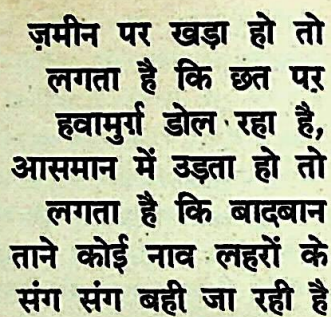 ज़मीन पर खड़ा हो तो
लगता है कि छत पर
हवामुर्ग़ डोल रहा है,
आसमान में उड़ता हो तो
लगता है कि बादबान
ताने कोई नाव लहरों के
संग संग बही जा रही है